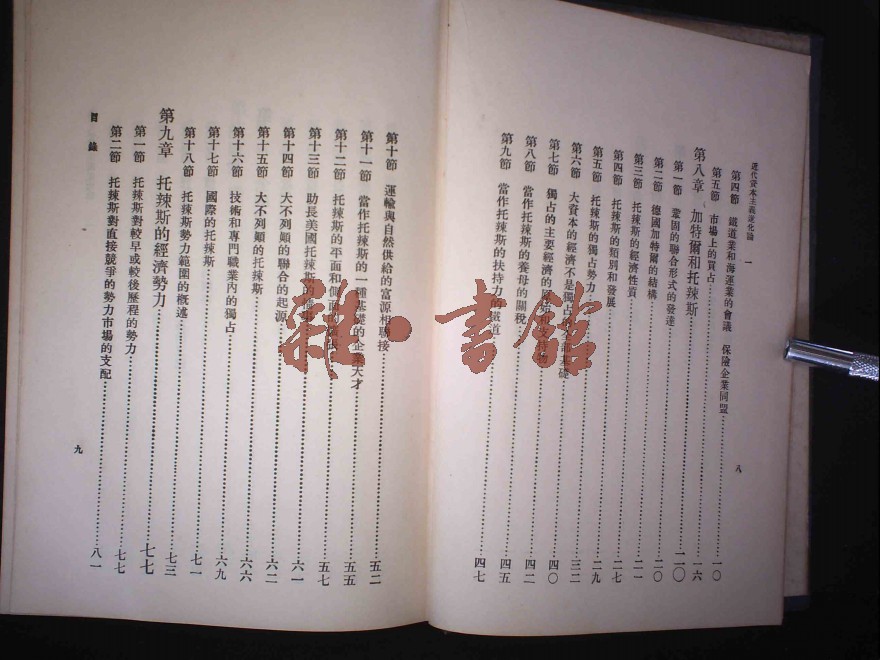 近代資本主義進化論 一
第四節 鐵道業和海運業的會議 保險企業同盟 一〇
第五節 市場上的買占 一六
第八章 加特爾和托辣斯 二〇
第一節 鞏固的聯合形式的發達 二〇
第二節 德國加特爾的結構 二一
第三節 托辣斯的經濟性質 二七
第四節 托辣斯的類別和發展 二九
第五節 托辣斯的獨占勢力 三二
第六節 大資本的經濟不是獨占的 基礎 四〇
第七節 獨占的主要經濟的 四二
第八節 當作托辣斯的養母的關稅 四五
第九節 當作托辣斯的扶持力的鐵道 四七
八
第十節 運輸與自然供給的富源相聯接 五二
第十一節 當作托辣斯的一種基礎的企業天才 五五
第十二節 托辣斯的平面和側面的 五七
第十三節 助長美國托辣斯的 六一
第十四節 大不列顛的聯合的起源 六二
第十五節 大不列顛的托辣斯 六六
第十六節 技術和專門職業內的獨占 六九
第十七節 國際的托辣斯 七一
第十八節 托辣斯勢力範圍的概述 七三
第九章 托辣斯的經濟勢力 七七
第一節 托辣斯對較早或較後歷程的勢力 七七
第二節 托辣斯對直接競爭的勢力市場的支配 八一
目錄
九
雜·書館